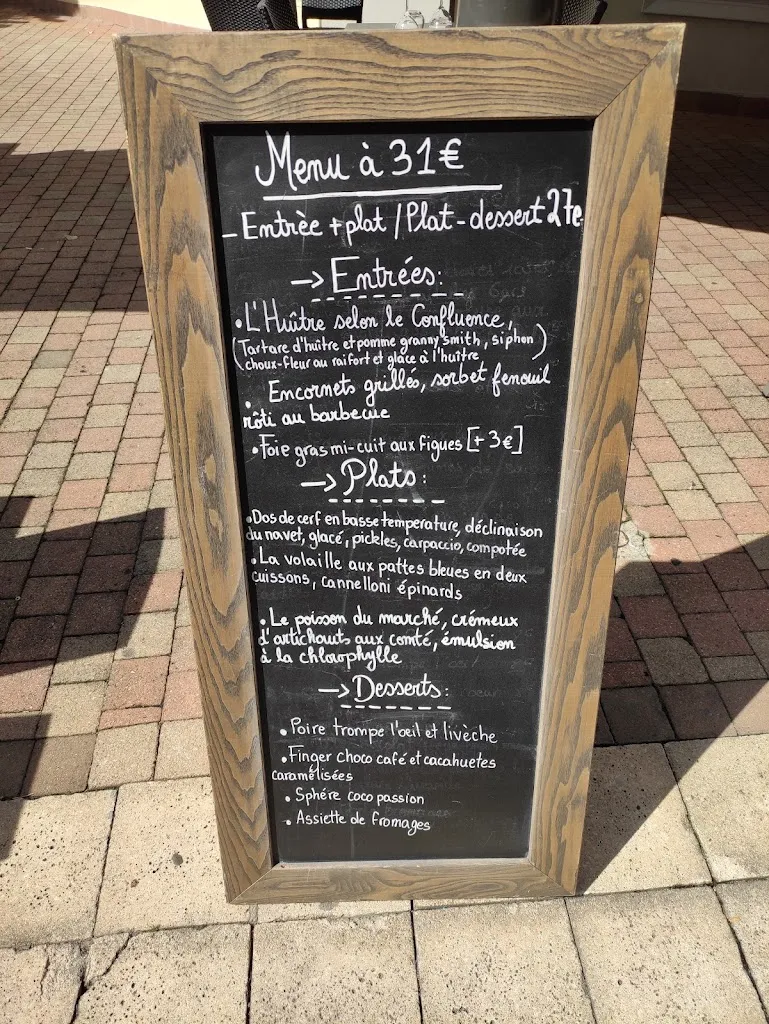 Menu à 31€
- Entrèe + plat / Plat - dessert 27e
→ Entrées:
• L'Huître selon le Confluence,
(Tartare d'huître et pomme granny smith, siphon)
choux-fleur au raifort et glace à l'huître
• Encornets grillés, sorbet fenouil
rôti au barbecue
• Foie gras mi-cuit aux figues [+3€]
→ Plats:
• Dos de cerf en basse temperature, déclinaison
du navet, glacé, pickles, carpaccio, compotée
• La volaille aux pattes bleues en deux
cuissons, cannelloni épinards
• Le poisson du marché, crémeux
d'artichauts aux comté, émulsion
à la chlorophylle
→ Desserts:
• Poire trompe l'oeil et livèche
• Finger choco café et cacahuetes
caramélisées
• Sphére coco passion
• Assiette de fromages